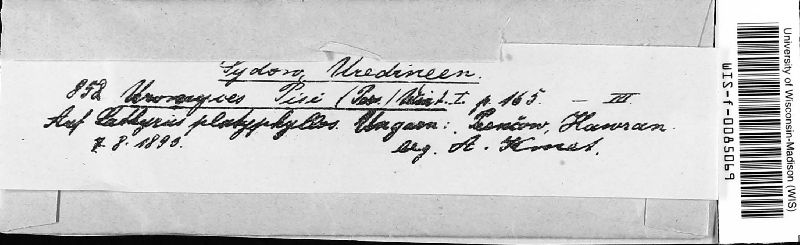 Sydow, Uredineen.
852 Uromyces Pisi (Pers.) Wint. I. p. 165. — III
Auf Lathyrus platyphyllos. Ungarn: Prenčow, Hawran.
7. 8. 1890.
leg. A. Kmet.
University of Wisconsin-Madison (WIS)
WIS-f-0085069